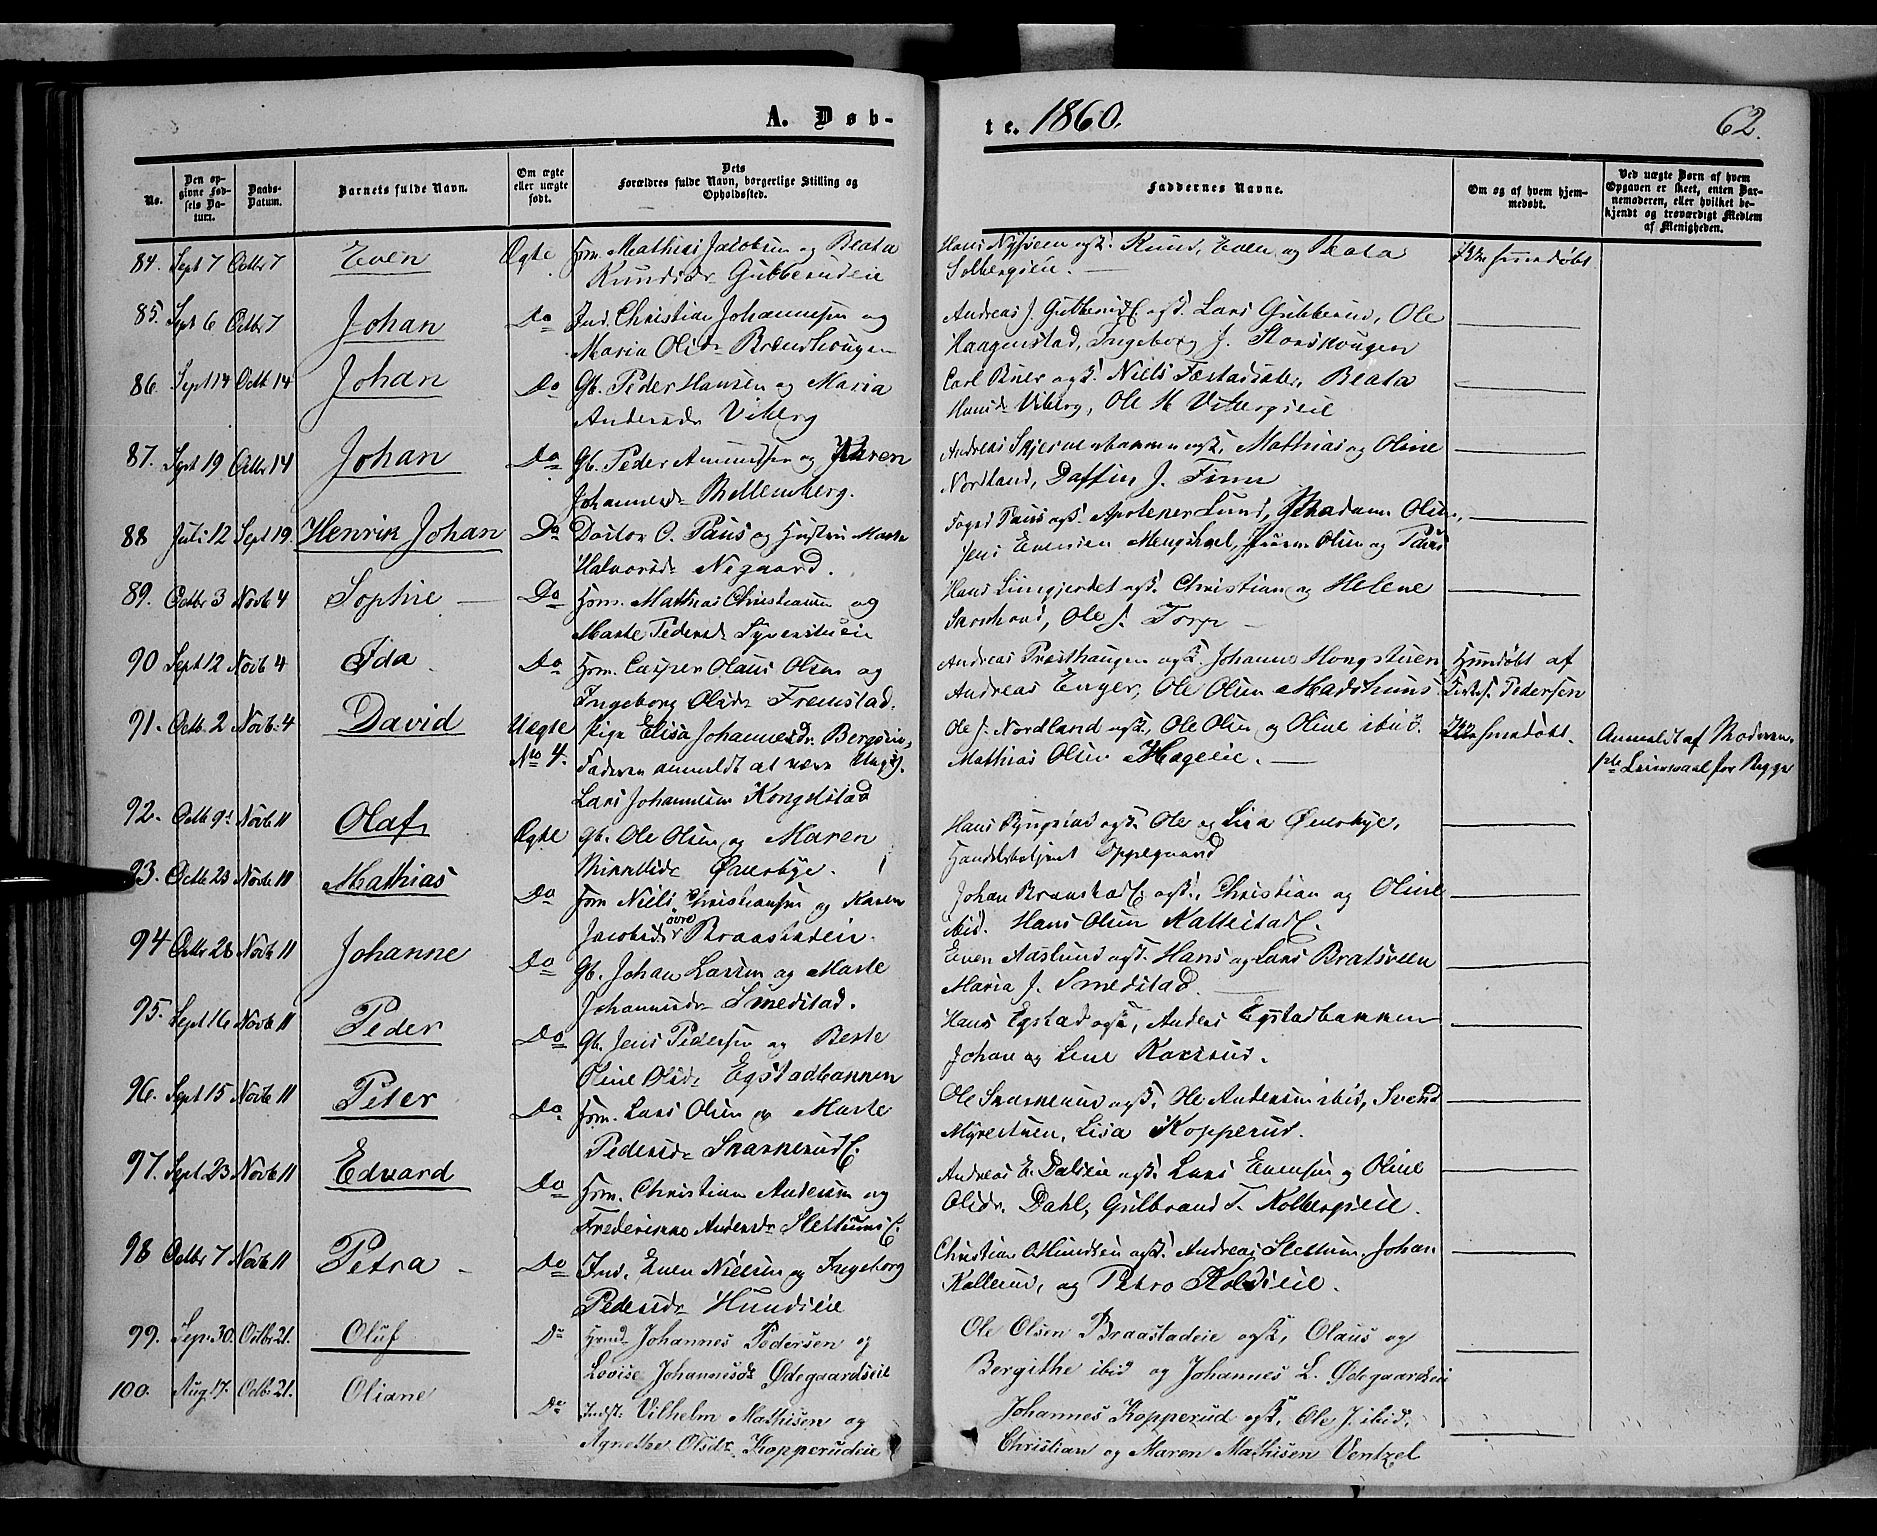 A. Døb-
te. 1860.
62.
No.
Den op-
givne Fød-
sels Da-
tum.
Daabs-
Datum.
Barnets fulde Navn.
Om ægte
eller uægte
født.
Dets
Forældres fulde Navn, borgerlige Stilling og
Opholdssted.
Faddernes Navne.
Om og af hvem hjem-
medøbt.
Ved uægte Børn af hvem
Opgaven er skeet, enten Bar-
nemoderen, eller hvilket be-
kjendt og troværdigt Medlem
af Menigheden.
84. Sept 7 Octbr 7 Even Ægte Hrm. Mathias Jacobsen og Beata
Knudsdr Gubberudeie
Hans Nyseien ogst. Knud, Even og Beata
Solbergseie.
85. Sept 6 Octbr 7 Johan Do Ind. Christian Johannesen og
Maria Olsdr Brendhougen
Andreas J. Gubberud ogst. Lars Gubberud, Ole
Haagenstad, Ingeborg J.
86. Sept 14 Octb 14 Johan Do Gb. Peder Hansen og Maria
Andersdr Viberg
Carl Buer ogst. Niels Beata
Hansdr Viberg, Ole H. Vibergseie
87. Sept 19 Octbr 14 Johan Do Gb. Peder Amundsen og Karen
Johannesdr
Andreas ogst. Mathias og Oline
Nordland, J. Finn
88 Juli 12 Sept 19. Henrik Johan Do Doctor O. Paus og Hustru Marte
Halvorsdr Nygaard.
Foged Paus ogst. Apoteker Lund, Madam Olsen,
Jens Evensen Mengshoel, Olsen og Paus
89. Octbr 3 Novb 4 Sophie Do Hrm. Mathias Christiansen og
Marte Pedersdr
Hans ogst. Christian og Helene
Ole J. Torp
90 Sept 12 Novb 4 Ida Do Hrm. Casper Olaus Olsen og
Ingeborg Olsdr Fremstad.
Andreas Præsthaugen ogst. Johannes
Andreas Enger, Ole Olsen Madshuus
Hjemdøbt af
Pedersen
91. Octb. 2 Novb. 4 David Uægte
No 4.
Pige Elisa Johannesdr Bergseie,
Faderen anmeldt at være Ungk.
Lars Johannesen Kongelstad
Ole J. Nordland ogst. Ole Olsen og Oline ibid.
Mathias Olsen Hageeie.
Anmeldt af Moderen.
92. Octb 9 Novb 11 Olaf Ægte Gb. Ole Olsen og Maren
Øverbye.
Hans ogst. Ole og Lisa Øverbye,
Handelsbetjent Oppegaard
93. Octb 23 Novb 11 Mathias Do Hrm Niels Christiansen og Karen
Jacobsdr øvre Braastadeie.
Johan Braastad ogst. Christian og Oline
ibid. Hans Olsen
94 Octbr 28 Novb 11 Johanne Do Gb. Johan Larsen og Marte
Johannesdr Smedstad.
Even Aaslund ogst. Hans og Lars Bratsveen
Maria J. Smedstad
95. Sept 16 Novb 11 Peder Do Gb. Jens Pedersen og Berte
Oline Olsdr Egstadbakken
Hans Egstad ogst, Anders Egstadbakken
Johan og Lene
96. Sept 15 Novb 11 Peter Do Hrm. Lars Olsen og Marte
Pedersdr
Ole ogst. Ole Andersen ibid, Svend
Lisa Kopperud.
97. Sept 23 Novb 11 Edvard Do Hrm. Christian Andersen og
Frederikke Andersdr Slettum
Andreas E. ogst. Lars Evensen og Oline
Olsdr. Dahl, Gulbrand T. Kolbergseie.
98 Octbr 7 Novb 11 Petra Do Ind. Even Nielsen og Ingeborg
Pedersdr Hundseie
Christian ogst. Andreas Slettum, Johan
Kallerud, og Petro
99. Sep. 30. Octbr 21. Oluf Do Johannes Pedersen og
Lovise Johannesdr Ødegaardseie
Ole Olsen Braastadeie ogst, Olaus og
Bergithe ibid og Johannes L. Ødegaardseie
100. Aug 17. Octbr. 21. Oliane Do Indst. Vilhelm Mathisen og
Agnethe Olsdr Kopperudeie
Johannes Kopperud ogst, Ole J. ibid,
Christian og Maren Mathisen Ventzel